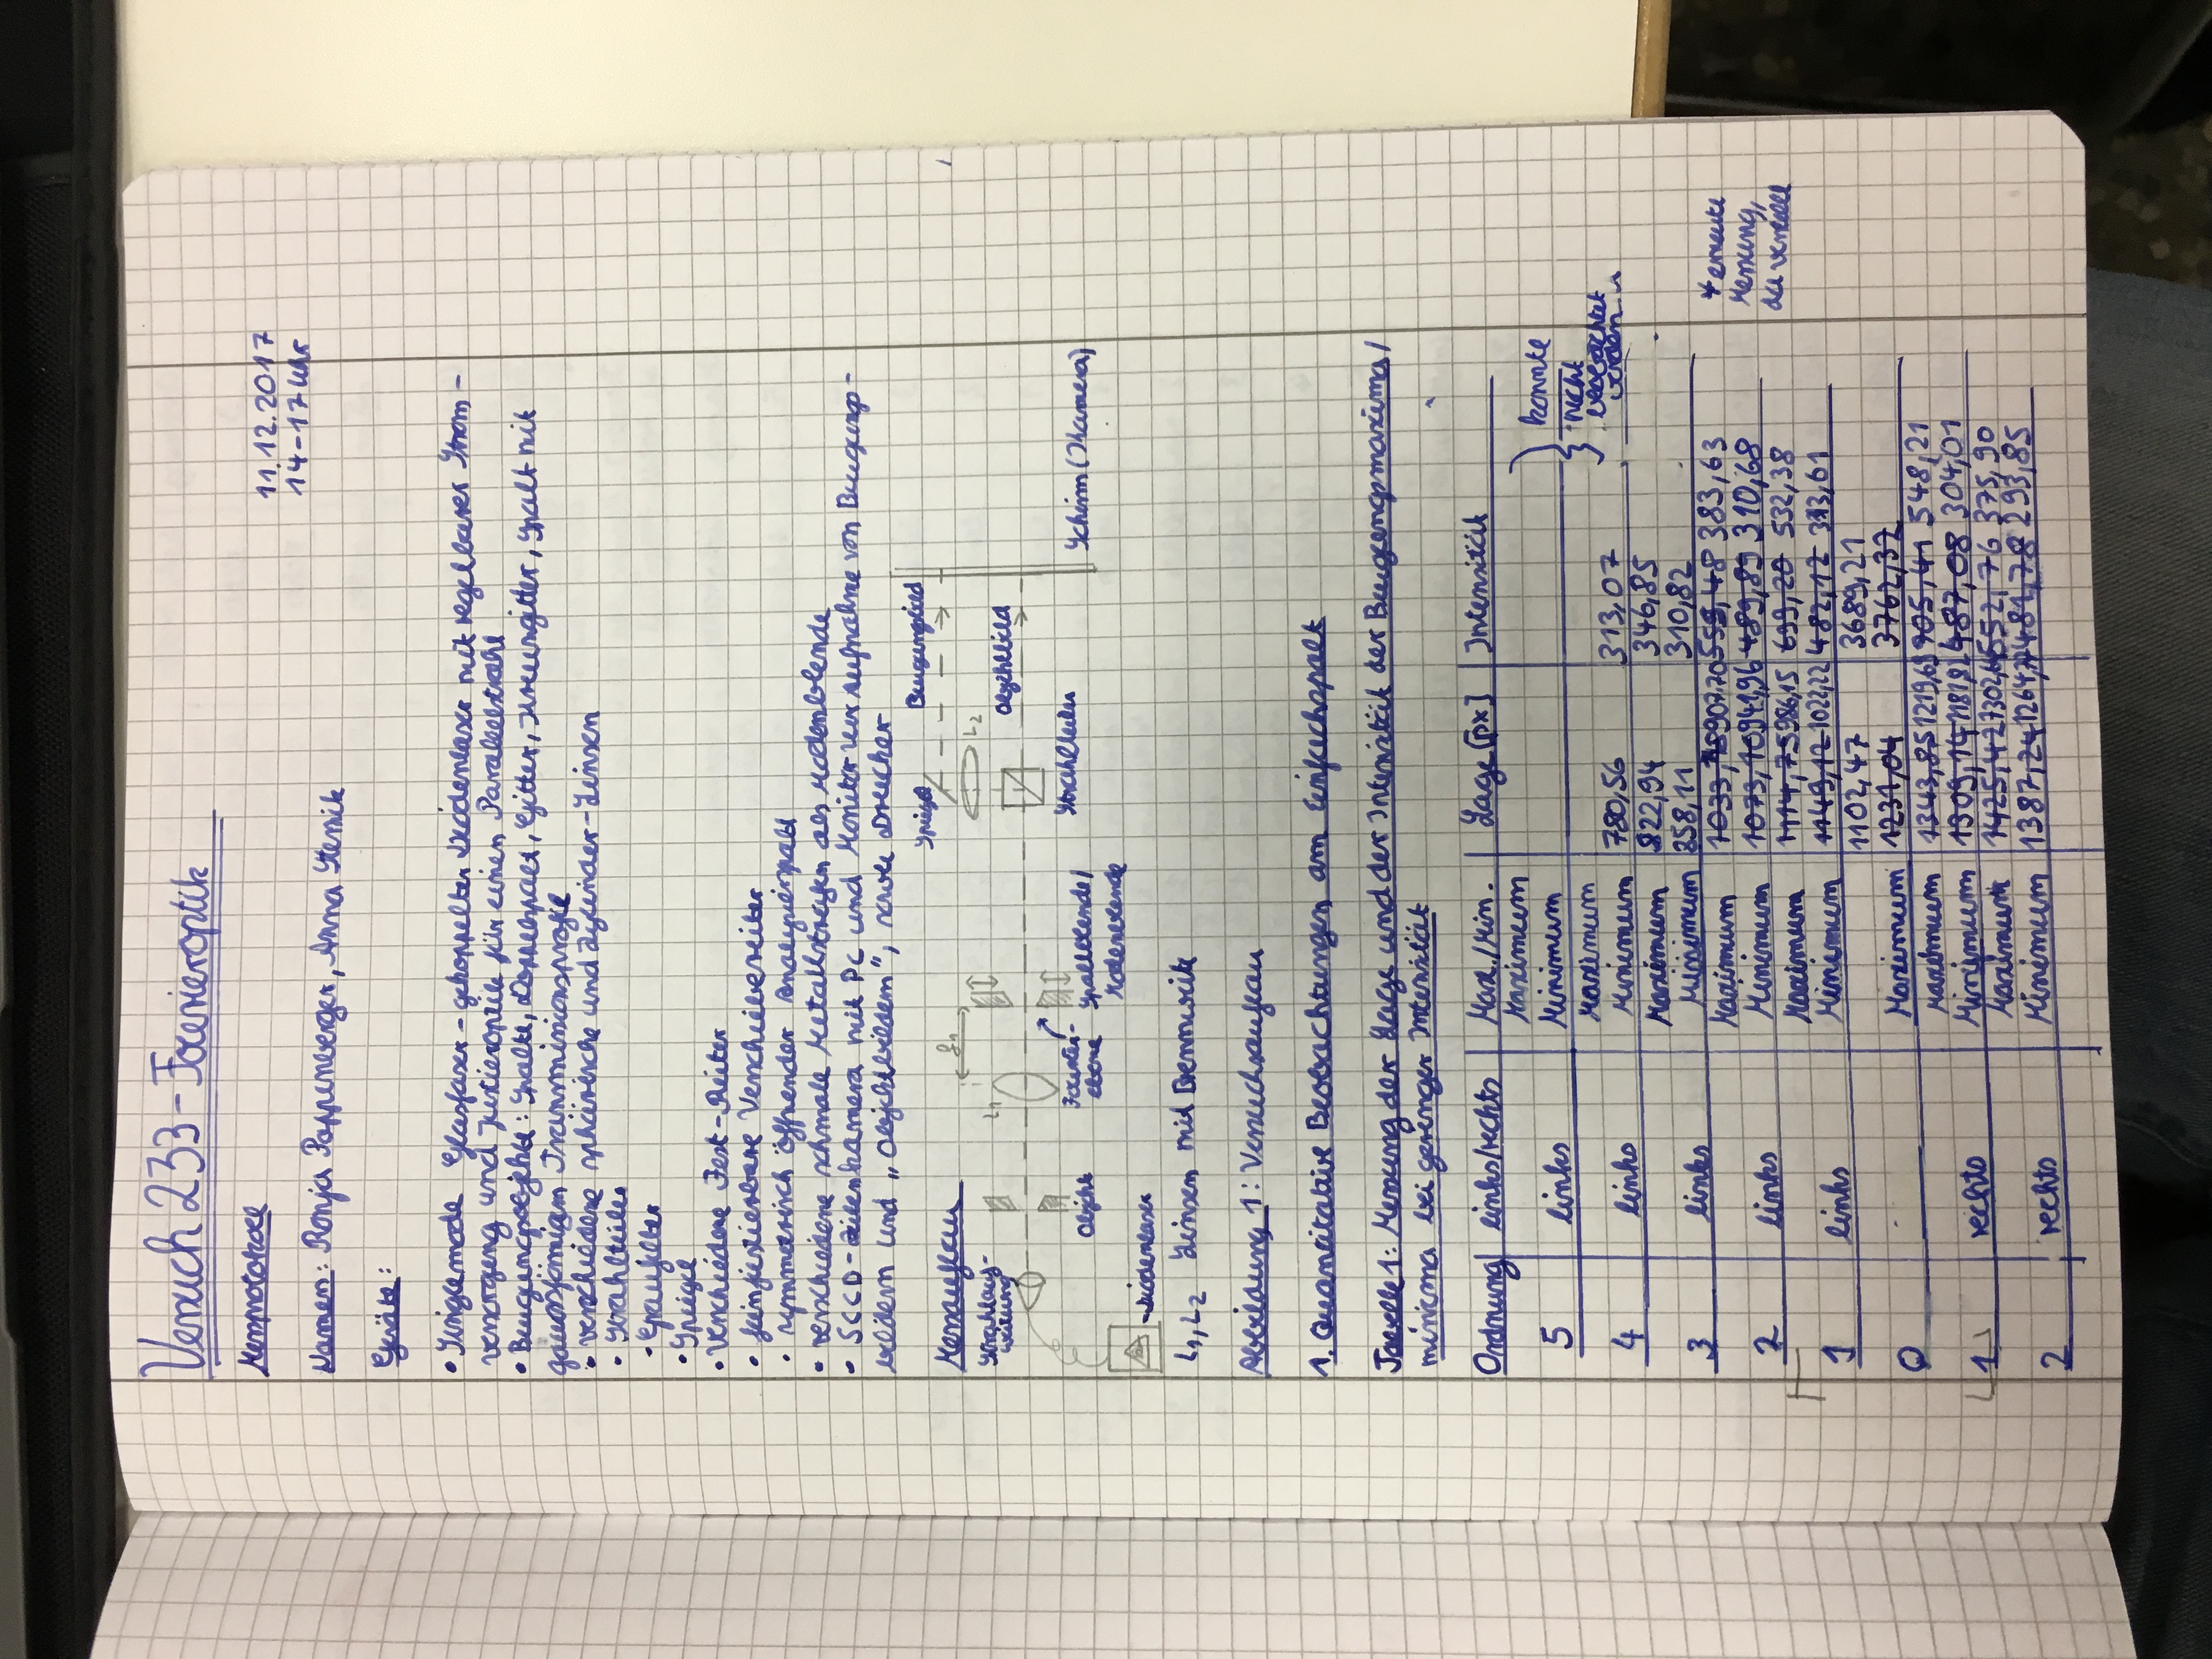 Versuch 233 - Fourieroptik
Messprotokoll
11.12.2017
14-17 Uhr
Namen: Ronja Pappenberger, Anna
Geräte:
• Singlemode Glasfaser-gekoppelter Diodenlaser mit regelbarer Strom-
versorgung und Justieroptik für einen Parallelstrahl
• Beugungsobjekte: Spalte, Doppelspalt, Gitter, Kreuzgitter, Spalt mit
gaussförmigem Transmissionsprofil
• verschiedene sphärische und Zylinder-Linsen
• Strahlteiler
• Graufilter
• Spiegel
• Verschiedene Fest-Reiter
• feinjustierbare Verschiebereiter
• symmetrisch öffnender Analysierspalt
• verschiedene schmale Metallstreifen als Modenblende
• SCCD-Zeilenkamera mit PC und Monitor zur Aufnahme von Beugungs-
bildern und „Objektbildern", sowie Drucker
Messaufbau
Spiegel
Beugungsbild
Strahlauf-
weitung
L1
f1
L2
Objektbild
Objekt
Fourier-
ebene
Spaltblende/
Modenblende
Strahlteiler
Schirm (Kamera)
Diodenlaser
L1, L2 Linsen mit Brennweite
Abbildung 1: Versuchsaufbau
1. Quantitative Beobachtungen am Einfachspalt
Tabelle 1: Messung der Lage und der Intensität der Beugungsmaxima/
minima bei geringer Intensität
Ordnung links/rechts Max./Min. Lage [px] Intensität
Maximum
5 links Minimum
konnte
nicht
beobachtet
werden
Maximum
4 links Minimum 780,56 313,07
Maximum 822,94 346,85
3 links Minimum 858,11 310,82
Maximum 1033,78 907,70 559,48 383,63
2 links Minimum 1073,10 941,96 489,89 310,68
* erneute
Messung,
da verstellt
Maximum 1114,75 986,15 699,20 532,38
1 links Minimum 1149,12 1022,22 482,12 313,61
1102,47 3689,21
0 Maximum 1231,04 3762,32
Maximum 1343,85 1219,69 905,41 548,21
1 rechts Minimum 1309,14 1181,92 487,08 304,01
Maximum 1425,42 1302,6 552,76 375,90
2 rechts Minimum 1387,24 481,78 293,85